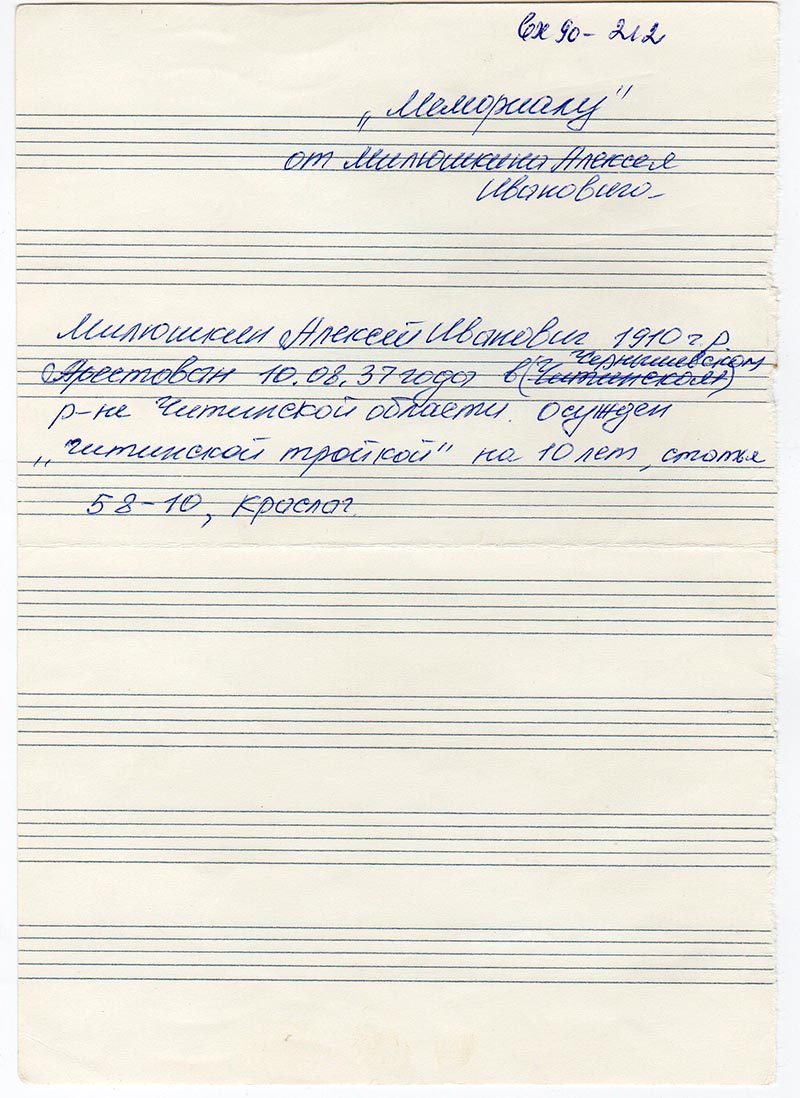 Вх 90-212
„Мемориалу"
от Милюшкина Алексея
Ивановича
Милюшкин Алексей Иванович 1910 г.р.
Чернышевском
Арестован 10.08.37 года в (Читинском)
р-не Читинской области. осужден
„читинской тройкой" на 10 лет, статья
58-10, Краслаг.